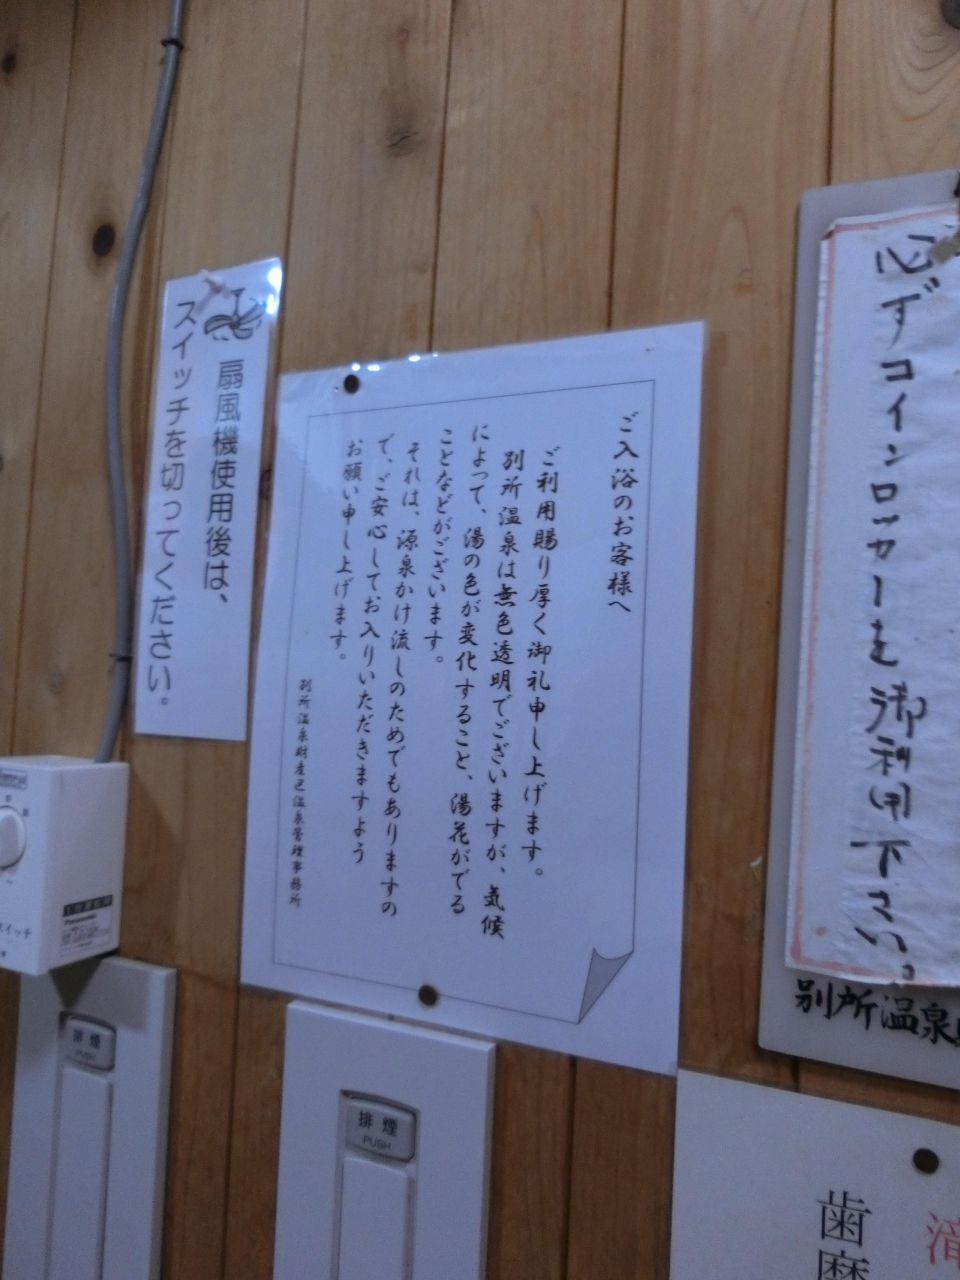 必ずコインロッカーを御利用下さい。
別所温泉
ご入浴のお客様へ
ご利用賜り厚く御礼申し上げます。
別所温泉は無色透明でございますが、気候
によって、湯の色が変化すること、湯花がでる
ことなどがございます。
それは、源泉かけ流しのためでもありますの
で、ご安心してお入りいただきますよう
お願い申し上げます。
別所温泉財産区温泉管理事務所
扇風機使用後は、
スイッチを切ってください。
Panasonic
スイッチ
排煙
PUSH
排煙
PUSH
歯磨